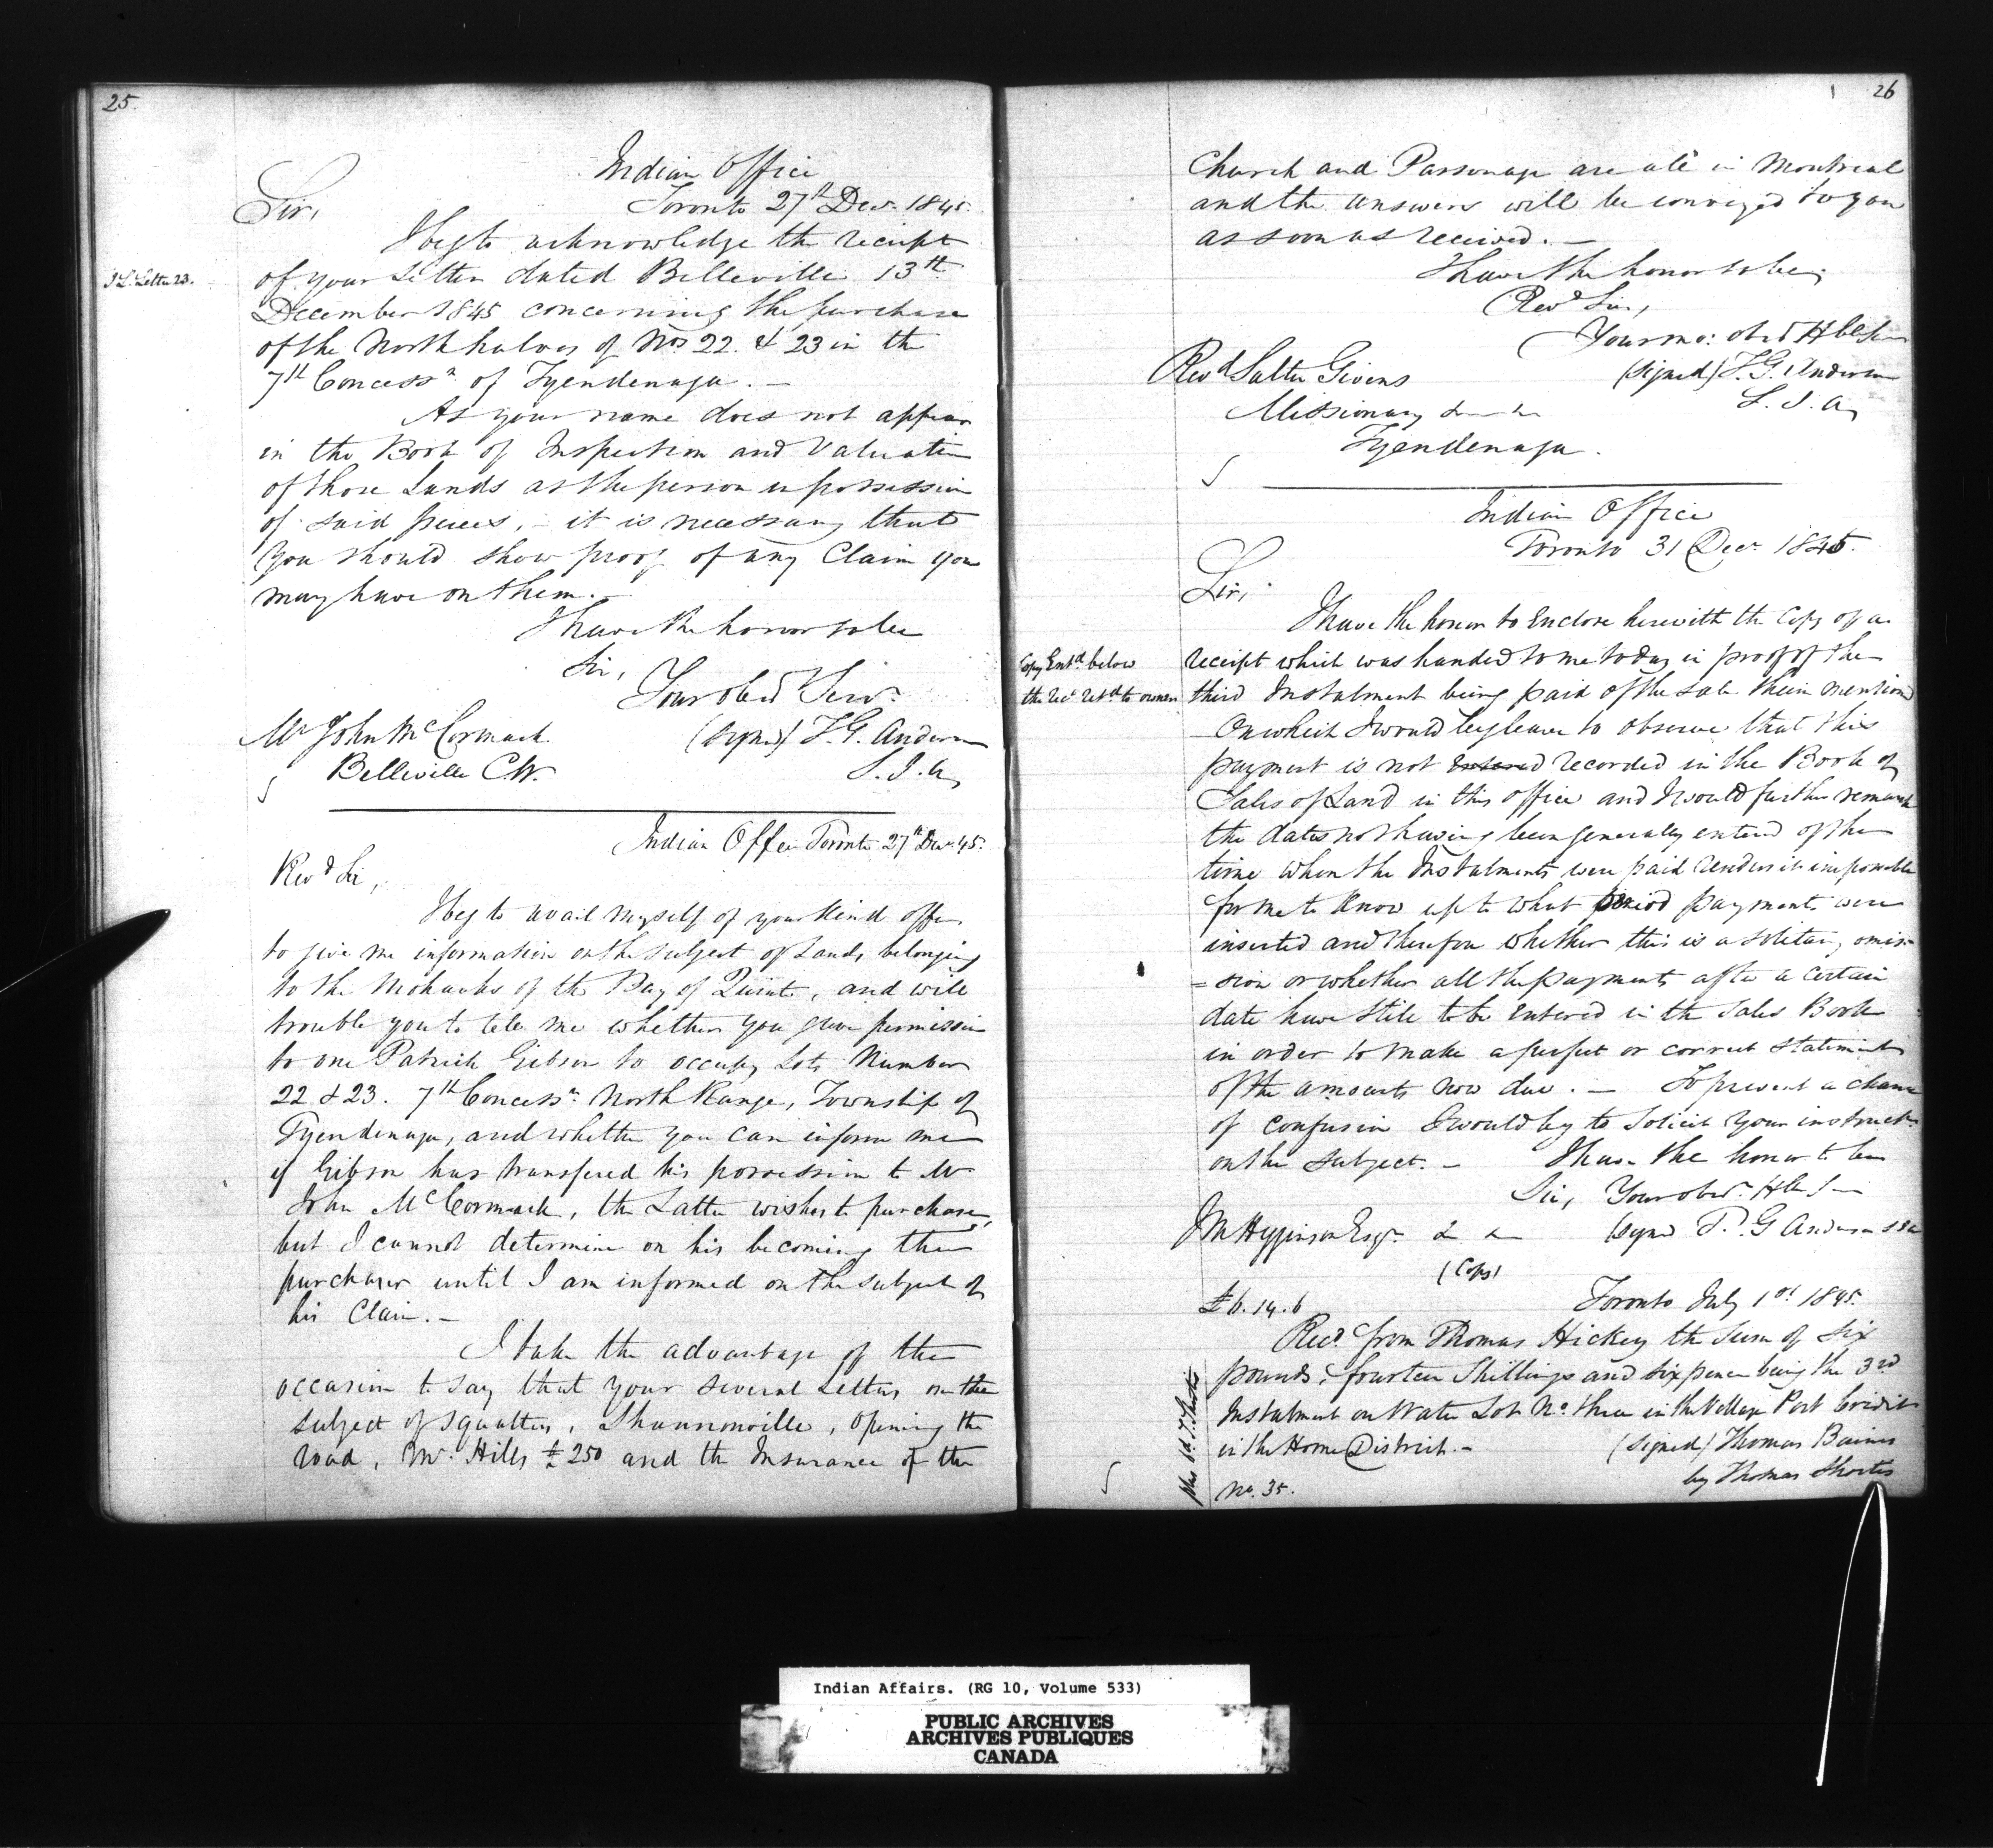 25.
Indian Office
Toronto 27th Decr. 1845.
Sir,
I beg to acknowledge the receipt
J L. Letter 23.
of your Letter dated Belleville 13th
December 1845 concerning the purchase
of the North halves of Nos 22. & 23 in the
7th Concessn. of Tyendenaga. —
As your name does not appear
in the Book of Inspection and Valuation
of those Lands as the person in possession
of said pieces, - it is necessary that
you should show proof of any Claim you
may have on them. —
I have the honor to be
Sir,
Your obed Servt.
Mr John McCormack
(signed) T. G. Anderson
Belleville C.W.
S. I. A.
Indian Office Toronto 27th Decr. 45.
Revd Sir,
I beg to avail myself of your kind offer
to give me information on the subject of Lands belonging
to the Mohawks of the Bay of Quinte, and will
trouble you to tell me whether you gave permission
to one Patrick Gibson to occupy Lots Number
22 & 23. 7th Concessn. North Range, Township of
Tyendenaga, and whether you can inform me
if Gibson has transfered his possession to Mr
John McCormack, the Latter wishes to purchase,
but I cannot determine on his becoming the
purchaser until I am informed on the subject of
his Claim. —
I take the advantage of the
occasion to say that your several Letters on the
subject of squatters, Shannonville, opening the
road, Mr. Hills £250 and the Insurance of the
26
Church and Parsonage are all in Montreal
and the answers will be conveyed to you
as soon as received. —
I have the honor to be,
Revd Sir,
Your mo: obed Hble Sert
Revd Salter Givins
(signed) T. G. Anderson
Missionary
S. I. A.
Tyendenaga.
Indian Office
Toronto 31 Decr. 1845.
Sir,
I have the honor to Enclose herewith the Copy of a
Copy Entd. below
receipt which was handed to me today in proof of the
the Rect retd. to owner
third Instalment being paid of the sale therein mentioned
On which I would beg leave to observe that this
payment is not Entered recorded in the Book of
Sales of Land in this office and I would further remark
the dates not having been generally entered of the
time when the Instalments were paid renders it impossible
for me to know up to what period payments were
inserted and therefore whether this is a solitary omis-
=sion or whether all the payments after a certain
date have still to be Entered in the Sales Book
in order to make a perfect or correct statement
of the amounts now due. — To prevent a chance
of confusion I would beg to solicit your instructns
on the subject. — I have the honor to be
Sir, Your obedt. Hble St
J M Higginson Esqr.
(signed T. G Anderson SIA
(Copy)
£6.14.6
Toronto July 1st 1845.
Recd from Thomas Hickey the Sum of six
pounds, fourteen Shillings and six pence being the 3rd
Instalment on Water Lot No. three in the Village Port Credit
in the Home District. —
(signed) Thomas Baines
by Thomas Shortis
No. 35.
Indian Affairs. (RG 10, Volume 533)
PUBLIC ARCHIVES
ARCHIVES PUBLIQUES
CANADA